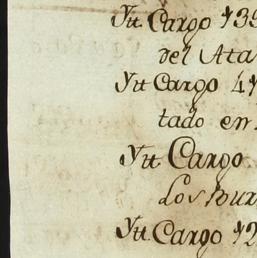 Ytt Cargo 139
del Ata
Ytt Cargo 41
tado en
Ytt Cargo
Los Bur
Ytt Cargo 12